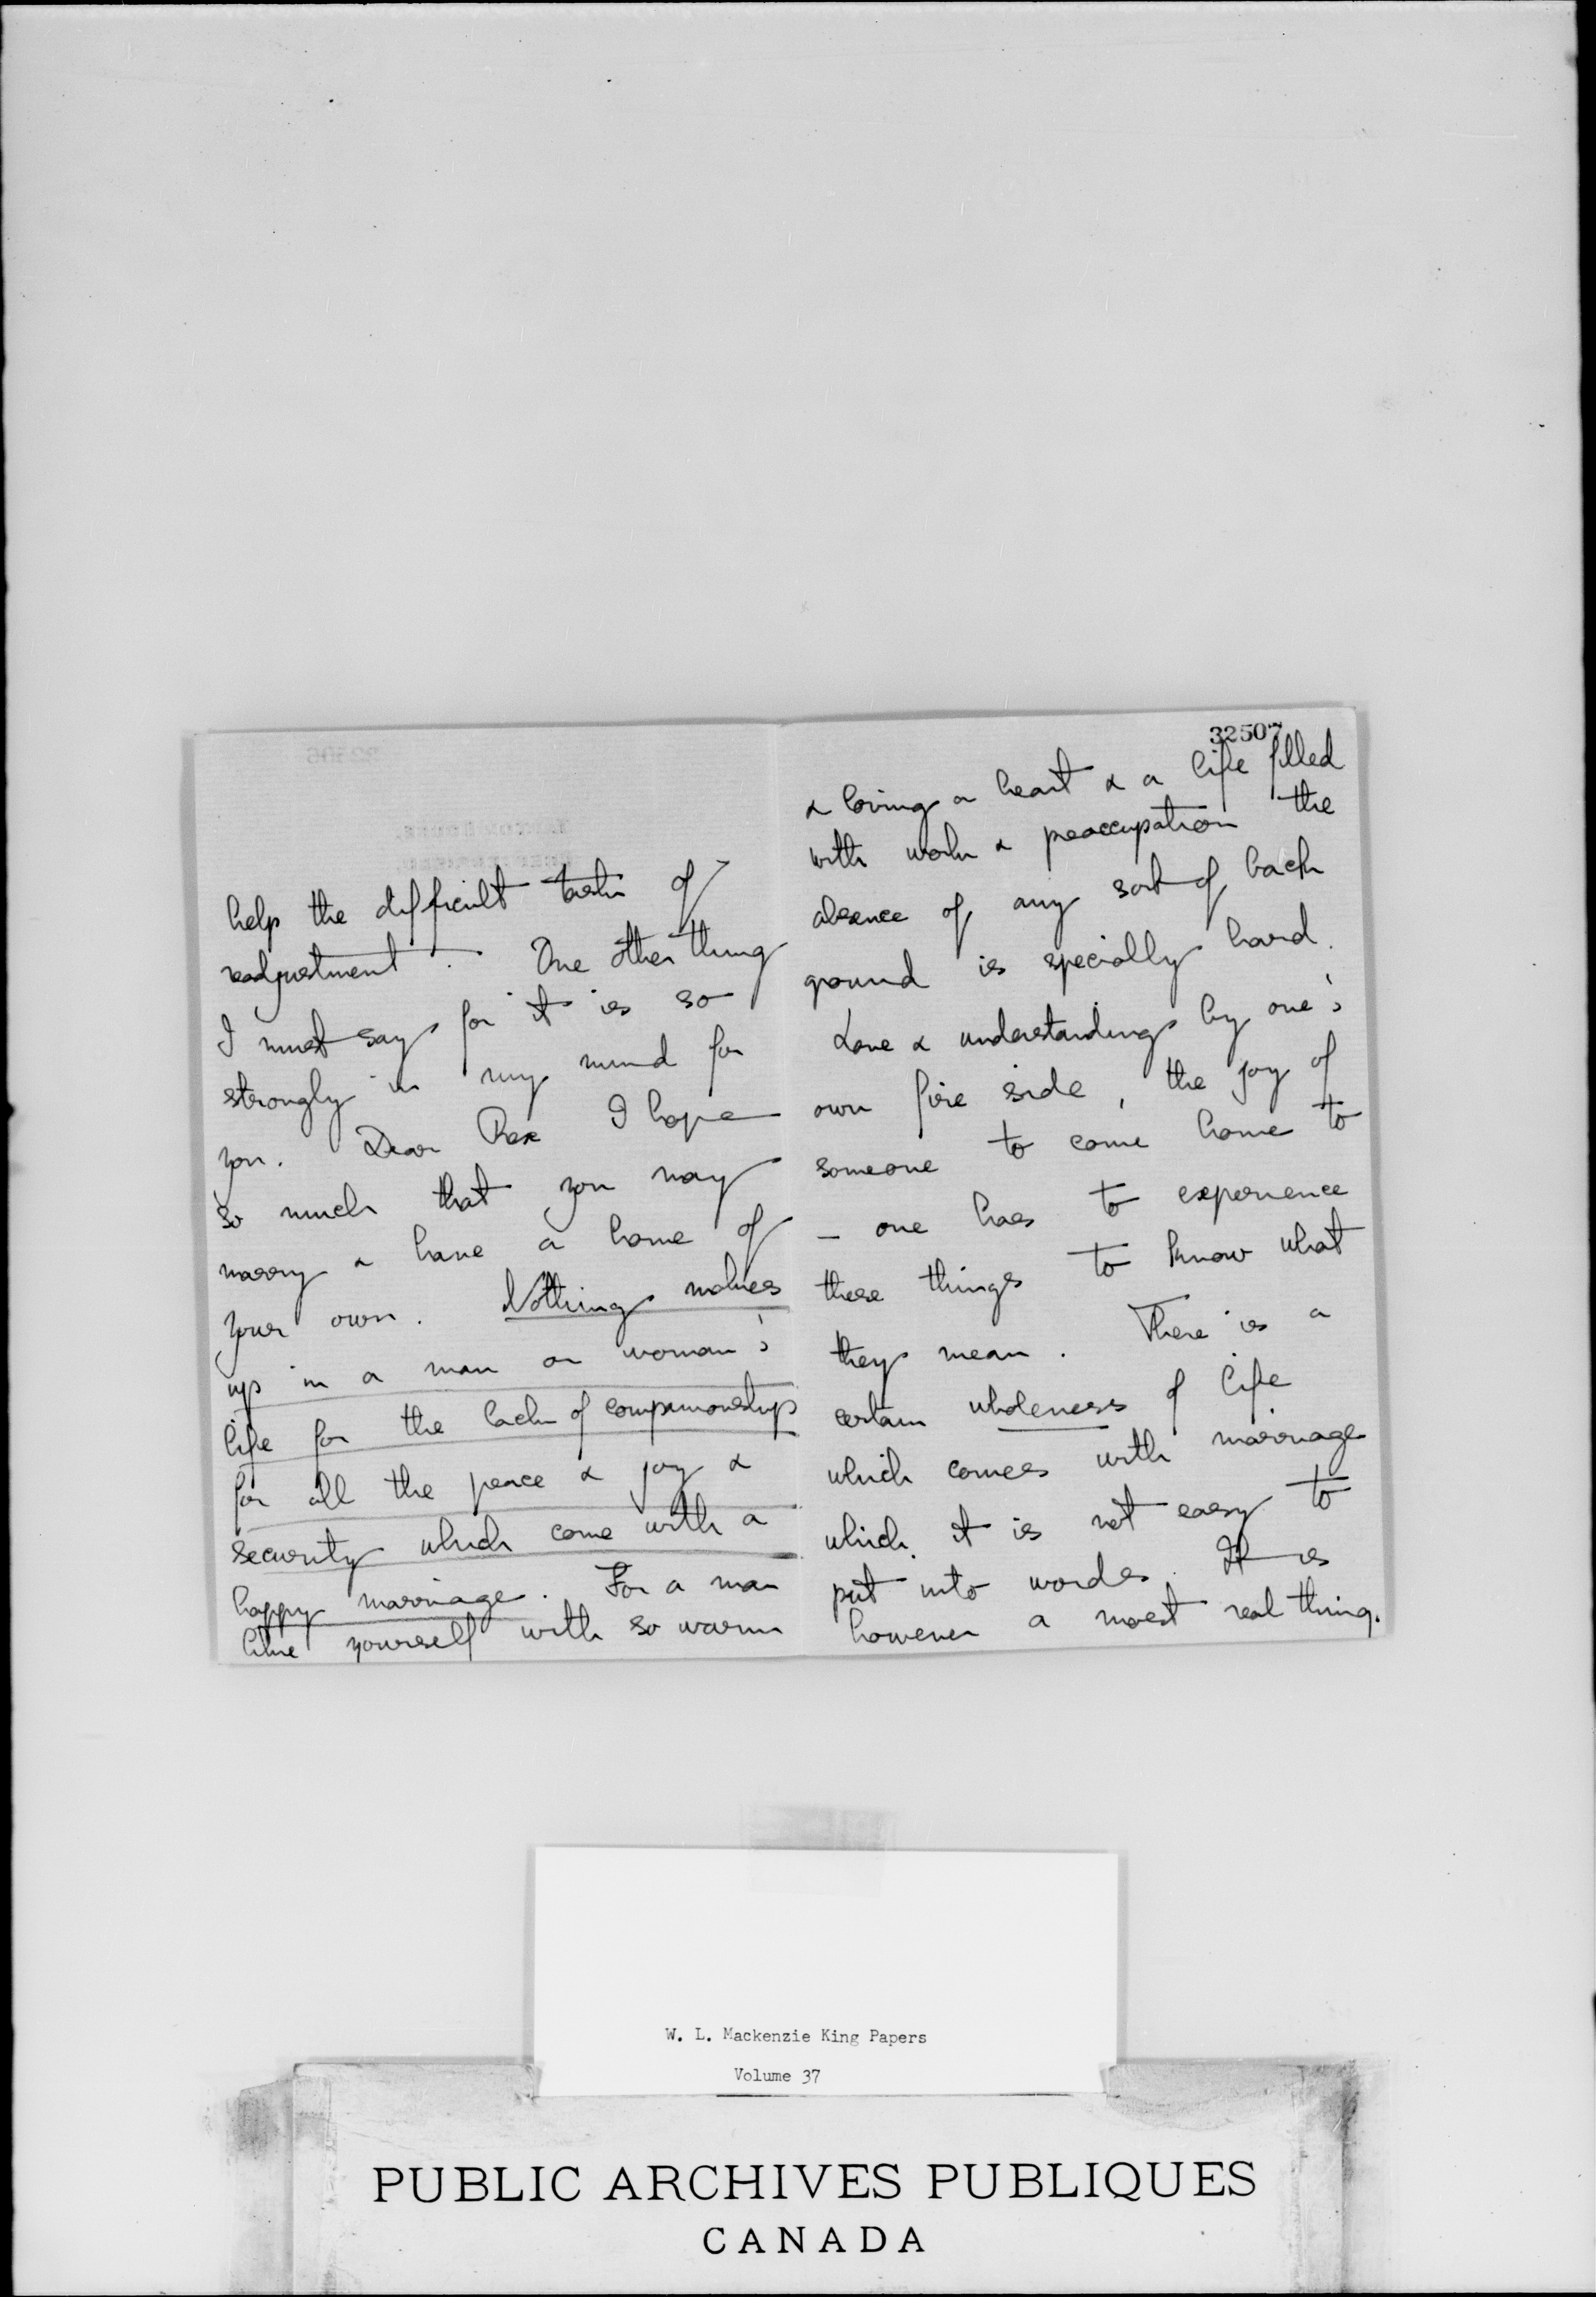 help the difficult task of
readjustment. One other thing
I must say for it is so
strongly in my mind for
you. Dear Rex I hope
so much that you may
marry & have a home of
your own. Nothing makes
up in a man or woman's
life for the lack of companionship
for all the peace & joy &
security which come with a
happy marriage. For a man
like yourself with so warm
32507
& loving a heart & a life filled
with work & preoccupation the
absence of any sort of back
ground is specially hard.
Love & understanding by one's
own fire side, the joy of
someone to come home to
- one has to experience
these things to know what
they mean. There is a
certain wholeness of life
which comes with marriage
which it is not easy to
put into words. It is
however a most real thing.
W. L. Mackenzie King Papers
Volume 37
PUBLIC ARCHIVES PUBLIQUES
CANADA